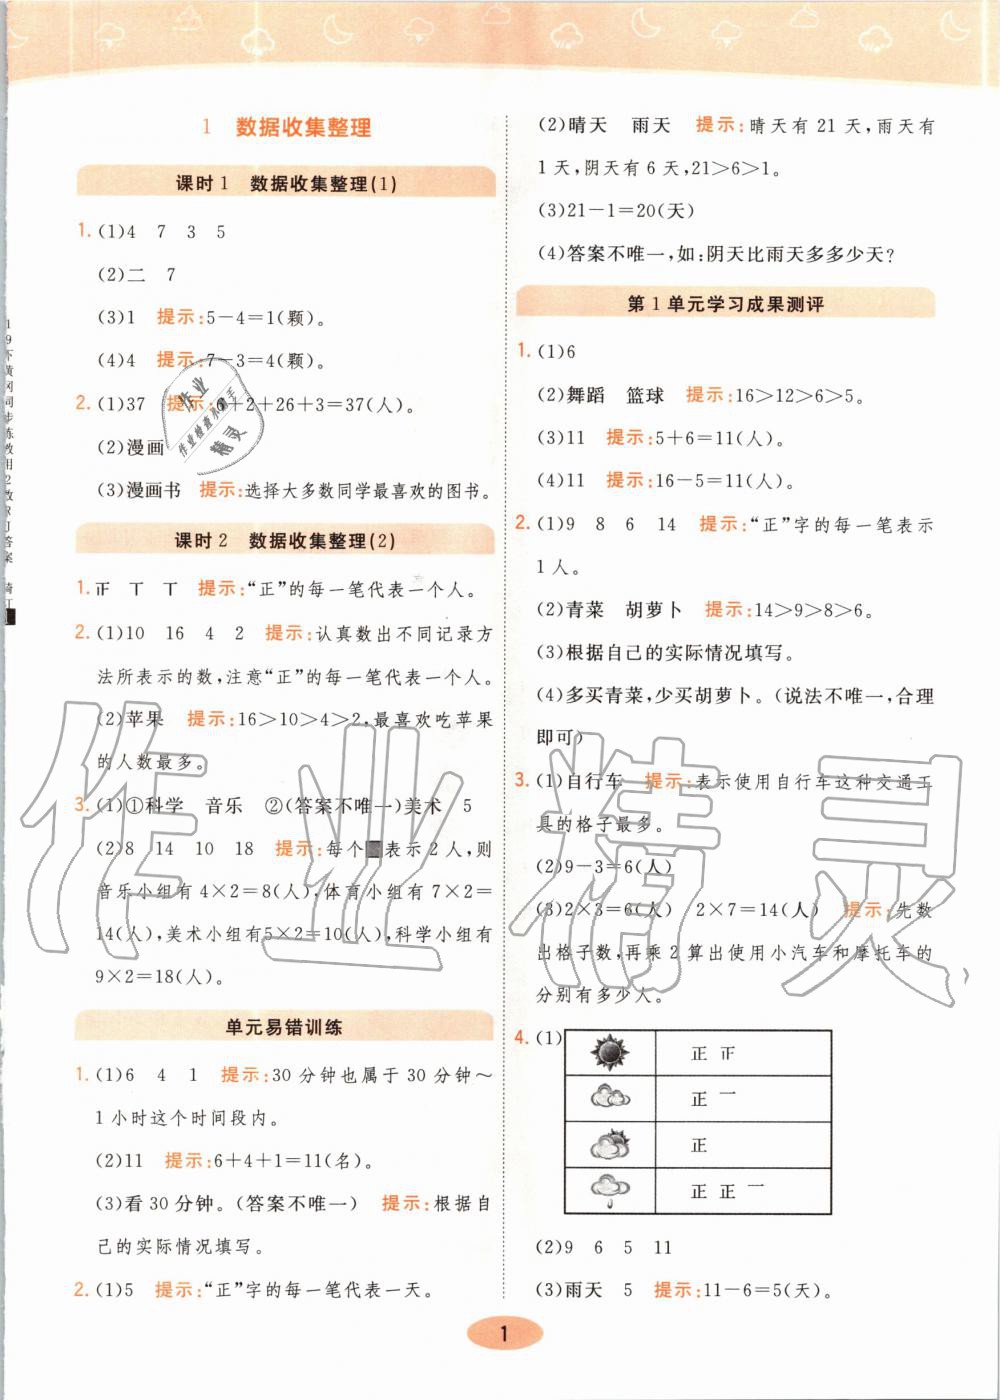 1 数据收集整理
课时1 数据收集整理(1)
1. (1)4 7 3 5
(2)二 7
(3)1 提示:5-4=1(颗)。
(4)4 提示:7-3=4(颗)。
2. (1)37 提示:6+2+26+3=37(人)。
(2)漫画
(3)漫画书 提示:选择大多数同学最喜欢的图书。
课时2 数据收集整理(2)
1. 提示:“正”的每一笔代表一个人。
2. (1)10 16 4 2 提示:认真数出不同记录方
法所表示的数,注意“正”的每一笔代表一个人。
(2)苹果 提示:16>10>4>2,最喜欢吃苹果
的人数最多。
3. (1)①科学 音乐 ②(答案不唯一)美术 5
(2)8 14 10 18 提示:每个 表示2人,则
音乐小组有4×2=8(人),体育小组有7×2=
14(人),美术小组有5×2=10(人),科学小组有
9×2=18(人)。
单元易错训练
1. (1)6 4 1 提示:30分钟也属于30分钟~
1小时这个时间段内。
(2)11 提示:6+4+1=11(名)。
(3)看30分钟。(答案不唯一) 提示:根据自
己的实际情况填写。
2. (1)5 提示:“正”字的每一笔代表一天。
(2)晴天 雨天 提示:晴天有21天,雨天有
1天,阴天有6天,21>6>1。
(3)21-1=20(天)
(4)答案不唯一,如:阴天比雨天多多少天?
第1单元学习成果测评
1. (1)6
(2)舞蹈 篮球 提示:16>12>6>5。
(3)11 提示:5+6=11(人)。
(4)11 提示:16-5=11(人)。
2. (1)9 8 6 14 提示:“正”字的每一笔表示
1人。
(2)青菜 胡萝卜 提示:14>9>8>6。
(3)根据自己的实际情况填写。
(4)多买青菜,少买胡萝卜。(说法不唯一,合理
即可)
3. (1)自行车 提示:表示使用自行车这种交通工
具的格子最多。
(2)9-3=6(人)
(3)2×3=6(人) 2×7=14(人) 提示:先数
出格子数,再乘2算出使用小汽车和摩托车的
分别有多少人。
4. (1)
正
正 一
正
正 正 一
(2)9 6 5 11
(3)雨天 5 提示:11-6=5(天)。
1
作业精灵
作业
作业检查小霸王
精灵